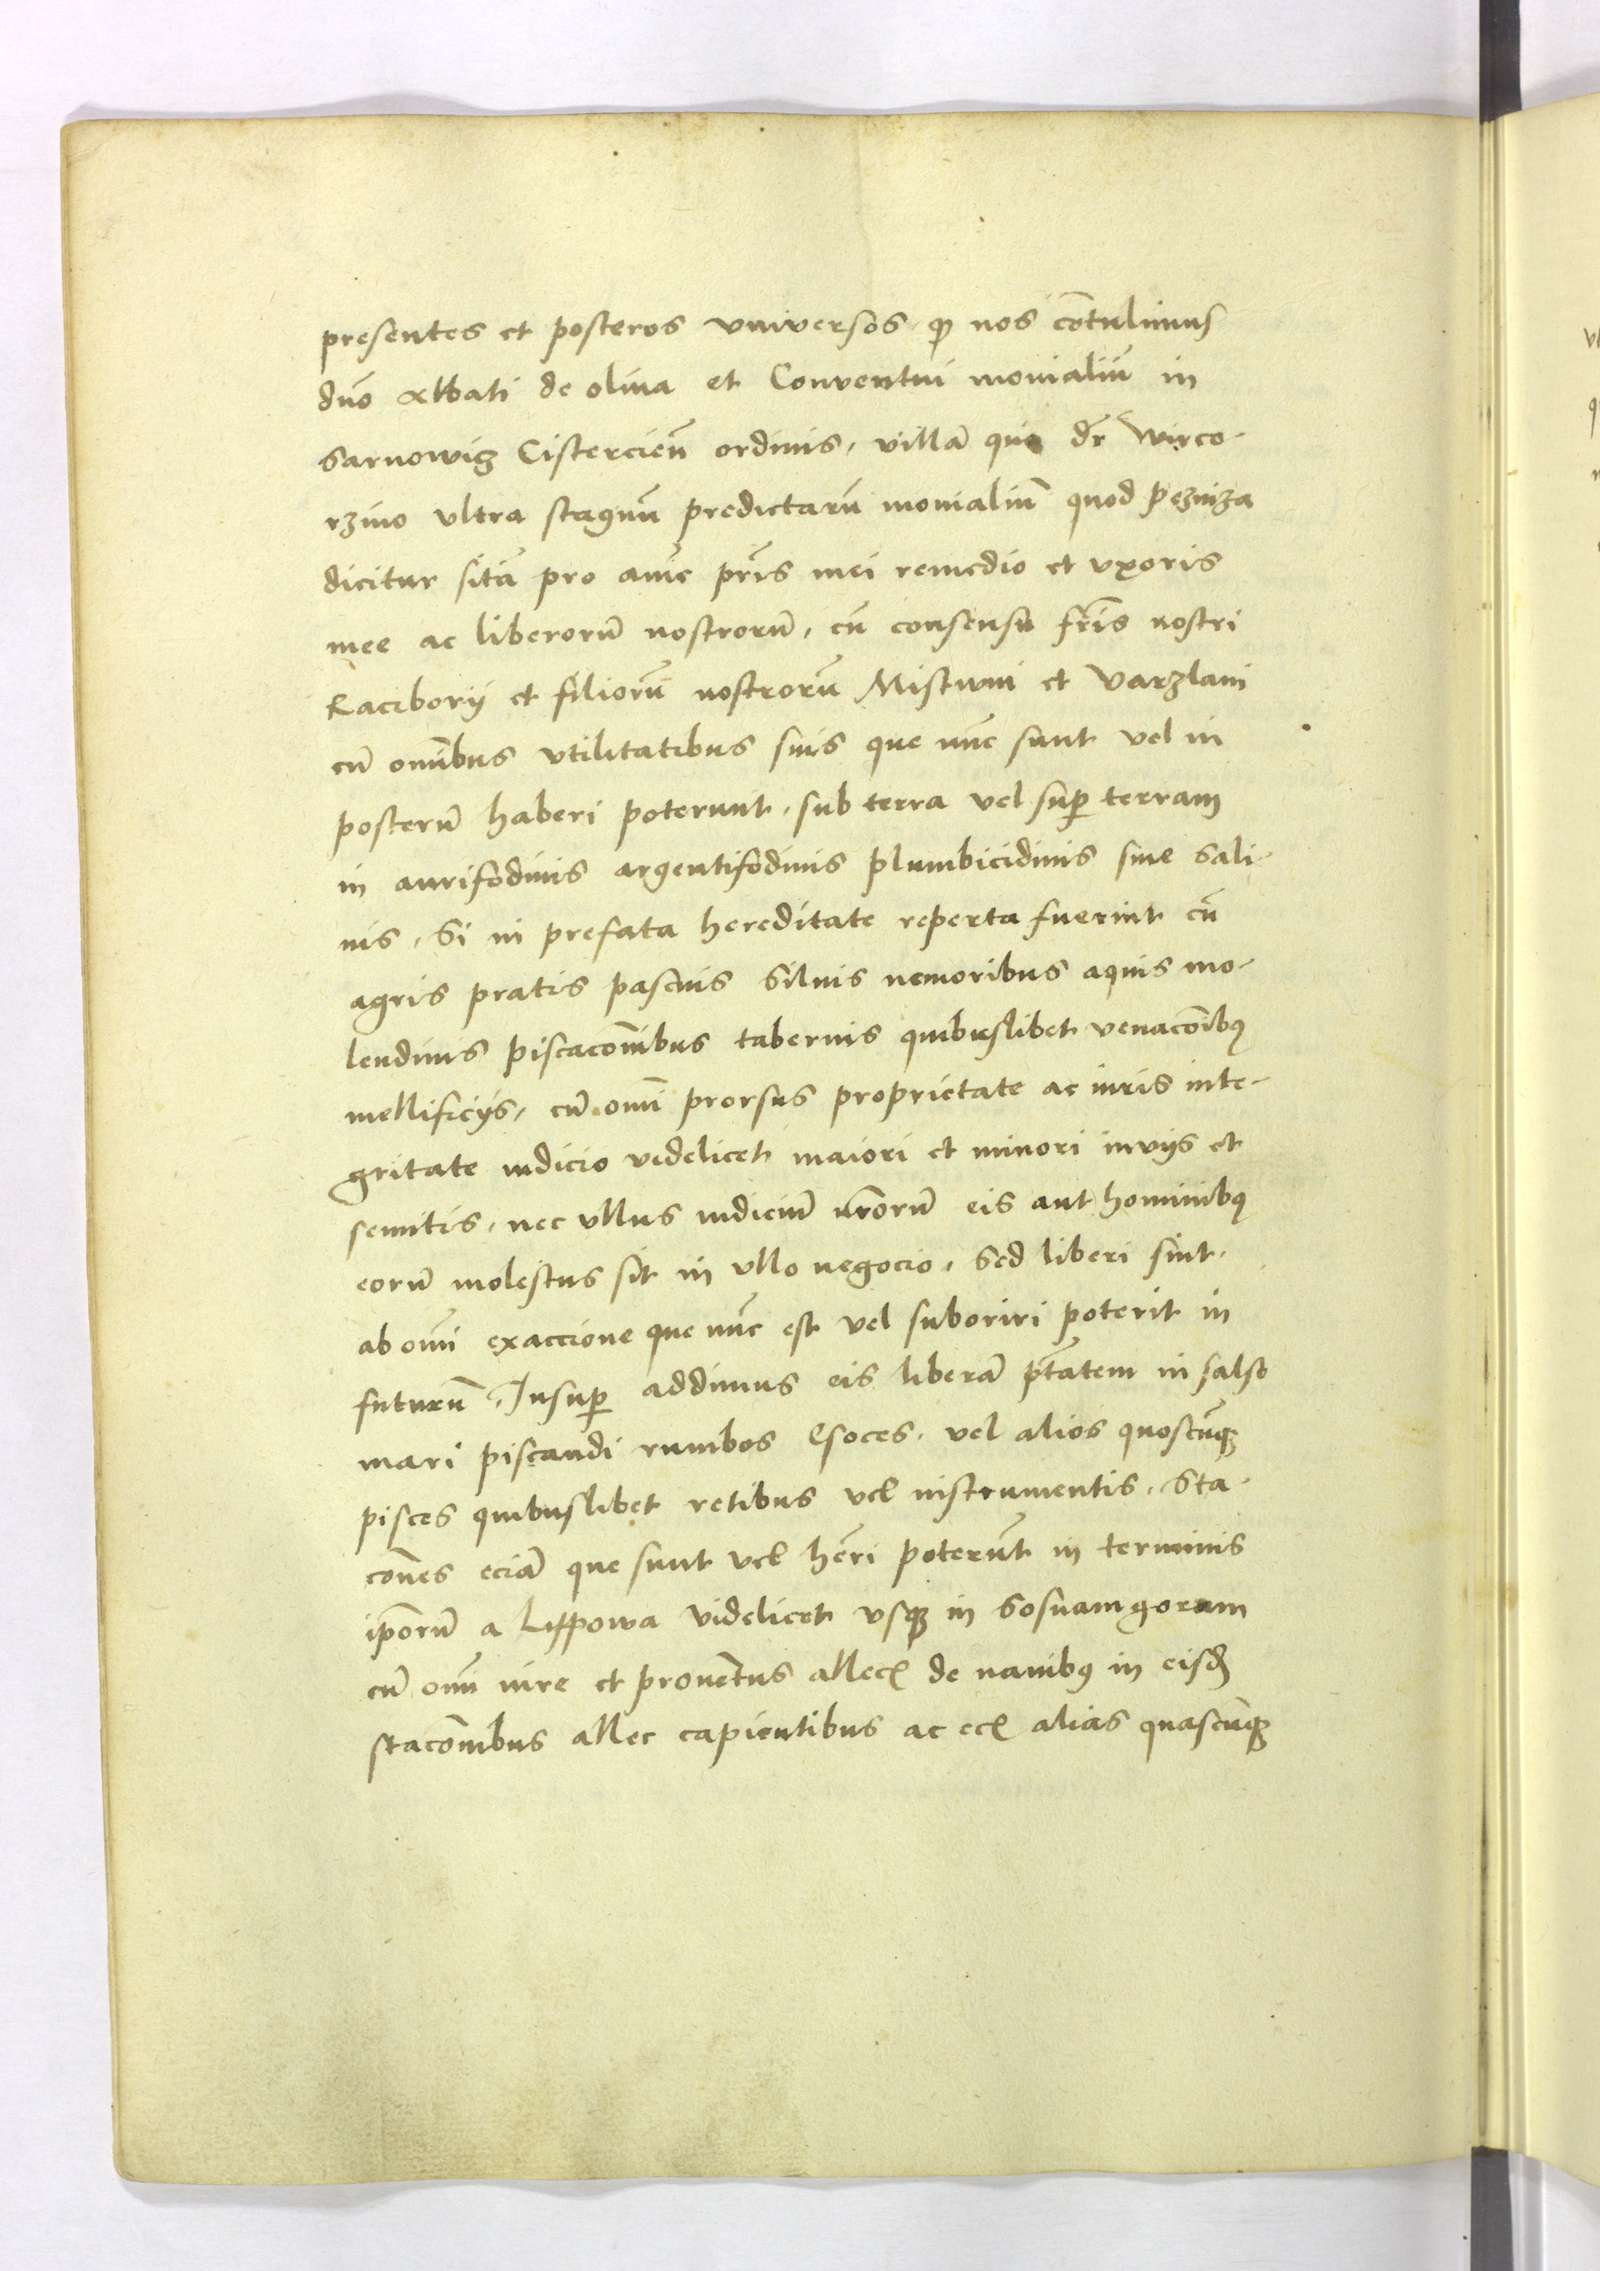 presentes et posteros vniversos, qꝫ nos cōtulimus
dn̄o abbati de oliua et Conventui monialiū in
Sarnowiz Cistercien̄ ordinis, villā que dr̄ Wirco-
rzino vltra stagnū predictarū monialiū quod pezniza
dicitur sitā pro aīe pr̄is mei remedio et vxoris
mee ac liberorū nostrorū, cū consensu fr̄is nostri
Raciborij et filiorū nostrorū Mistwni et Varzlani
cū om̄ibus vtilitatibus suis que nūc sunt vel in
posterū haberi poterunt, sub terra vel suꝑ terram
in aurifodinis argentifodinis plumbicidinis siue Sali-
nis, Si in prefata hereditate reperta fuerint cū
agris pratis pascuis Siluis nemoribus aquis mo-
lendinis piscacōnibus tabernis quibuslibet venacōibꝰ
mellificijs, cū om̄i prorsus proprietate ac iuris inte-
gritate iudicio videlicet maiori et minori in vijs et
semitis, nec vllus iudiciū nr̄orū eis aut hominibꝰ
eorū molestus sit in vllo negocio, Sed liberi sint
ab om̄i exaccione que nūc est vel suboriri poterit in
futurū, Insuꝑ addimus eis liberā ptātem in salso
mari piscandi rumbos Esoces, vel alios quoscūqꝫ
pisces quibuslibet retibus vel instrumentis, Sta-
cōnes eciā que sunt vel hēri poterūt in terminis
ip̄orū a Lippowa videlicet vsqꝫ in Sosnam goram
cū om̄i iure et prouētus allecꝭ de nauibꝰ in eisdꝫ
stacōnibus allec capientibus ac ecꝭ alias quascūqꝫ